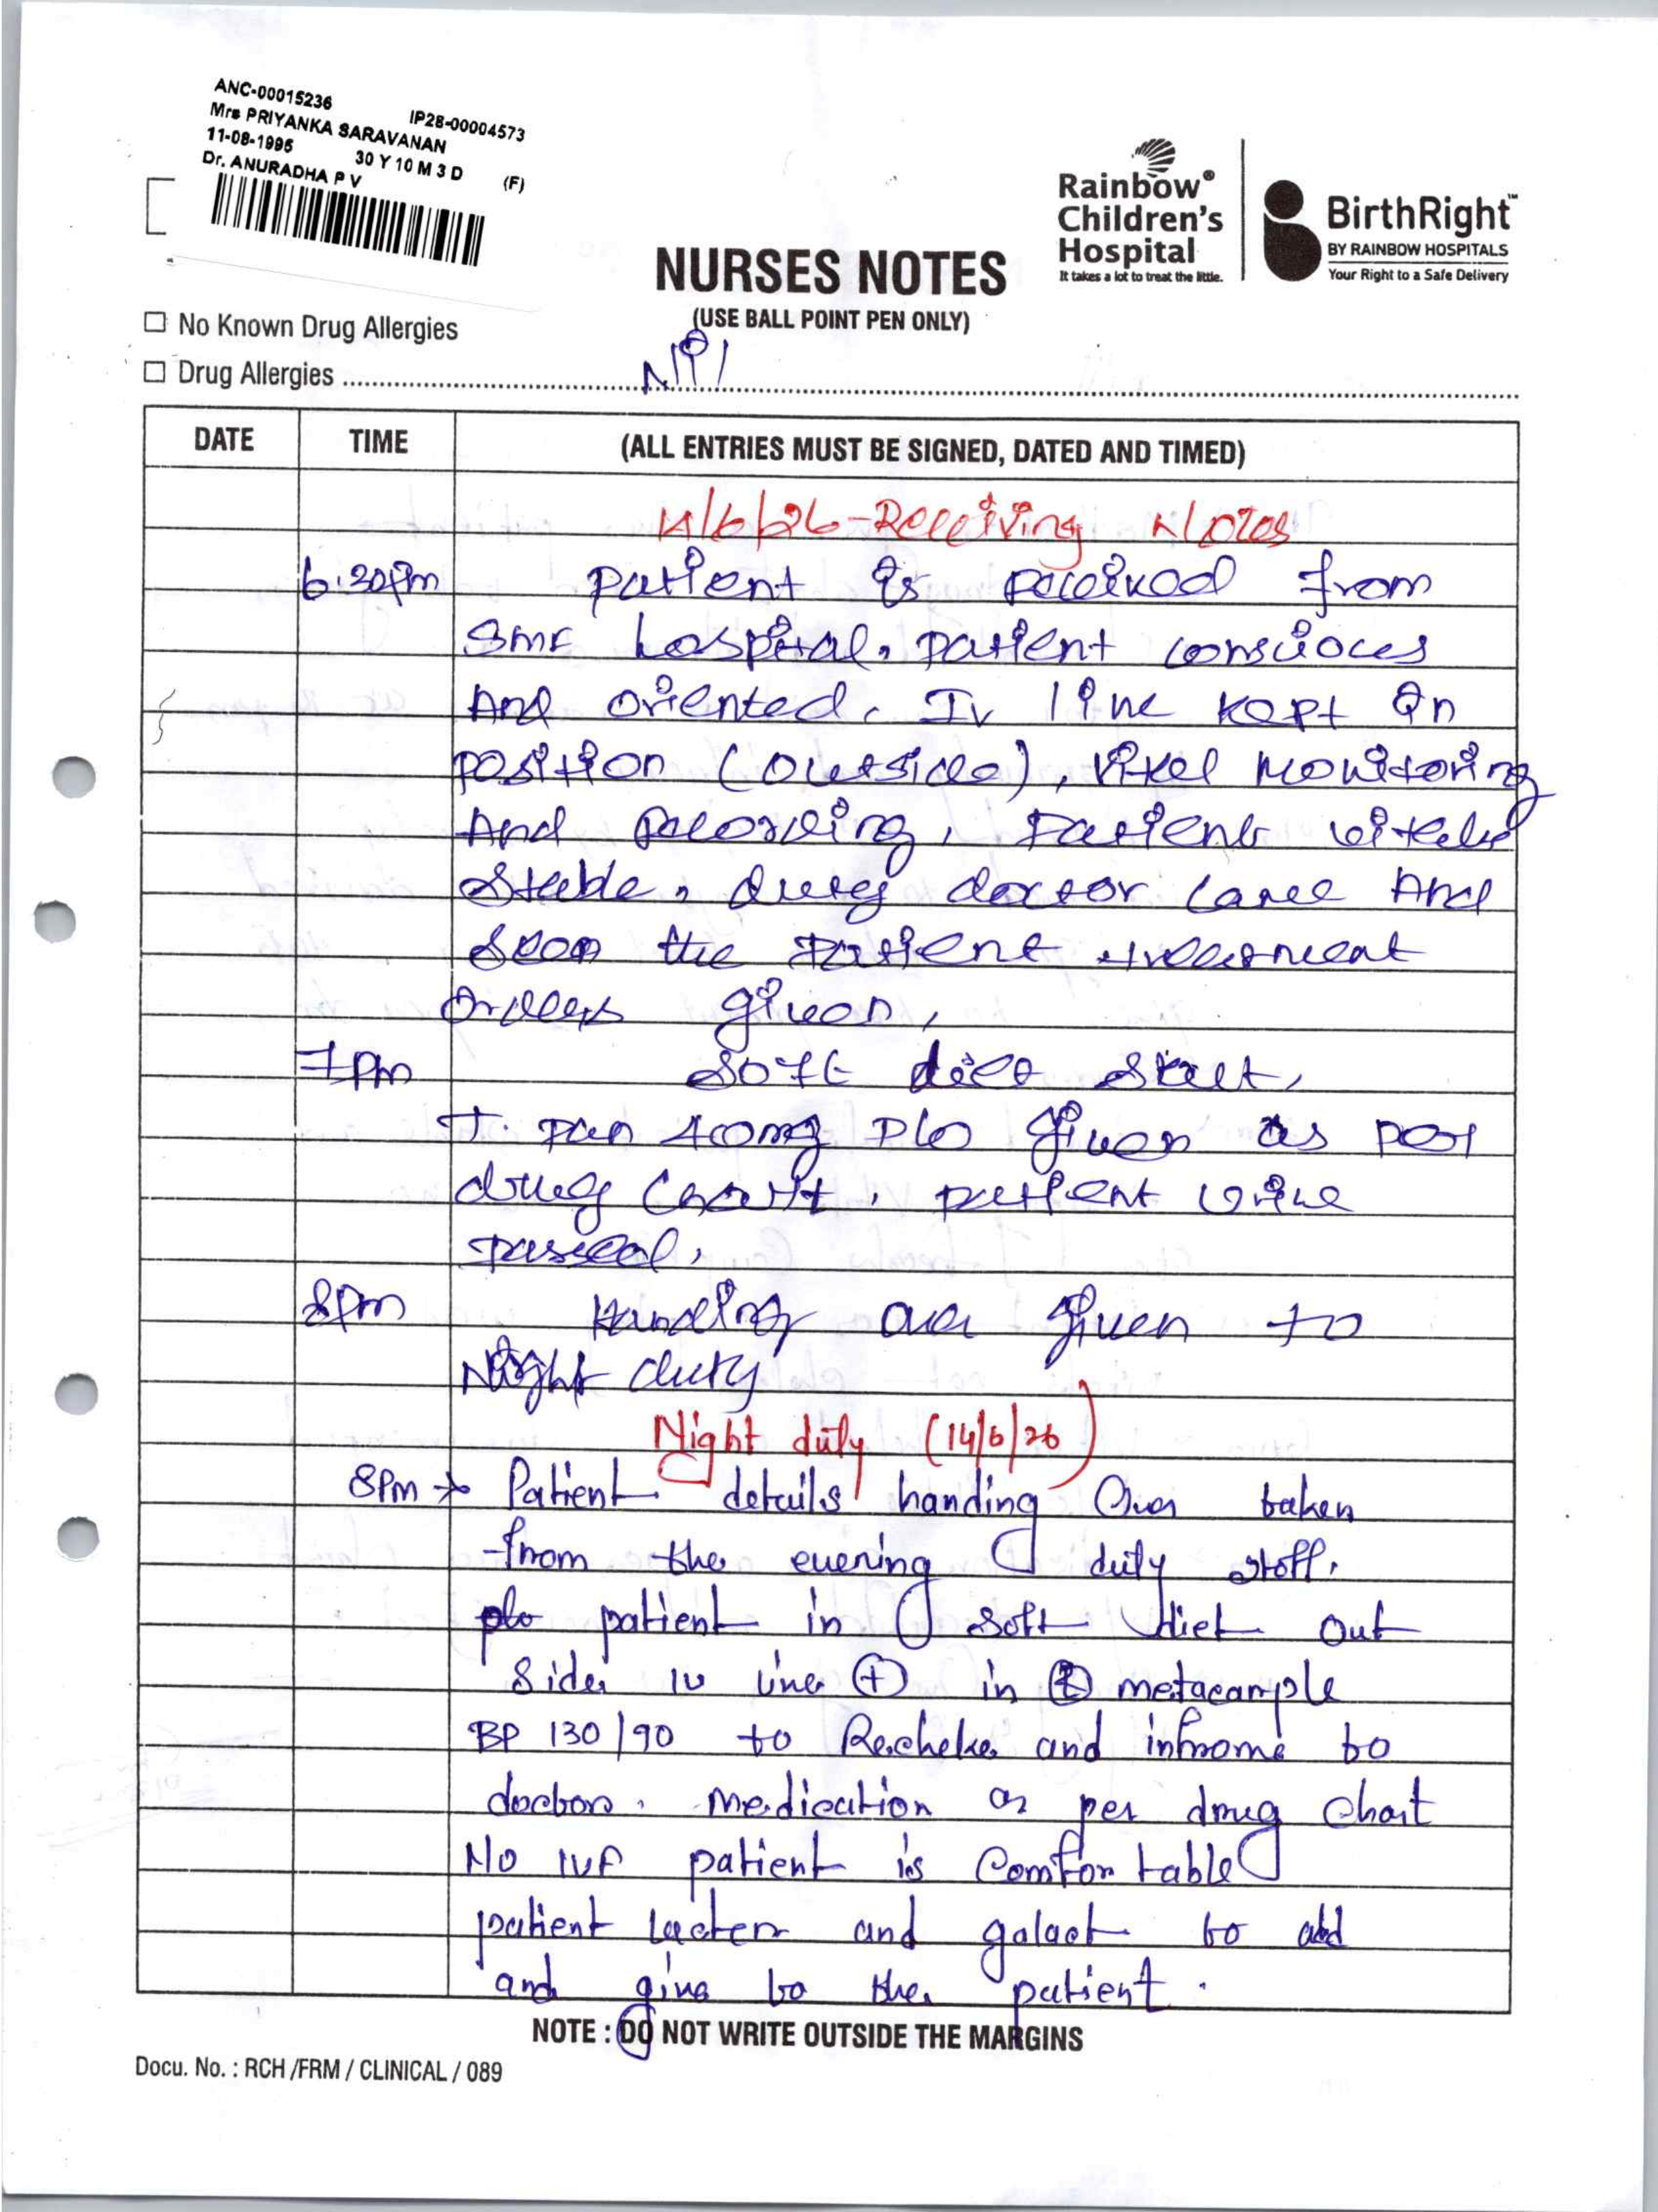 ANC-00015236
IP28-00004573
Mrs PRIYANKA SARAVANAN
11-08-1995 30 Y 10 M 3 D (F)
Dr. ANURADHA P V
Rainbow®
Children's
Hospital
It takes a lot to treat the little.
BirthRight™
BY RAINBOW HOSPITALS
Your Right to a Safe Delivery
NURSES NOTES
(USE BALL POINT PEN ONLY)
☐ No Known Drug Allergies
☐ Drug Allergies Nil
DATE TIME (ALL ENTRIES MUST BE SIGNED, DATED AND TIMED)
14/6/26-Receiving Notes
6:30pm patient is received from
hospital, patient
And oriented, Iv line kept in
position (outside), vital monitoring
And recording, patient vitals
stable, duty doctor And
seen the patient
orders given,
7pm soft diet start,
T. pan 40mg P/o given as per
drug chart, patient urine
passed,
8pm Handing over given to
Night duty
Night duty (14/6/26)
8Pm → Patient details handing Over taken
from the evening duty staff.
patient in soft diet out
side IV line (+) in metacample
BP 130/90 to Recheke and infrome to
doctor. medication as per drug chart
No IVF patient is Comfortable
patient and galact to add
and give to the patient.
NOTE : DO NOT WRITE OUTSIDE THE MARGINS
Docu. No. : RCH /FRM / CLINICAL / 089